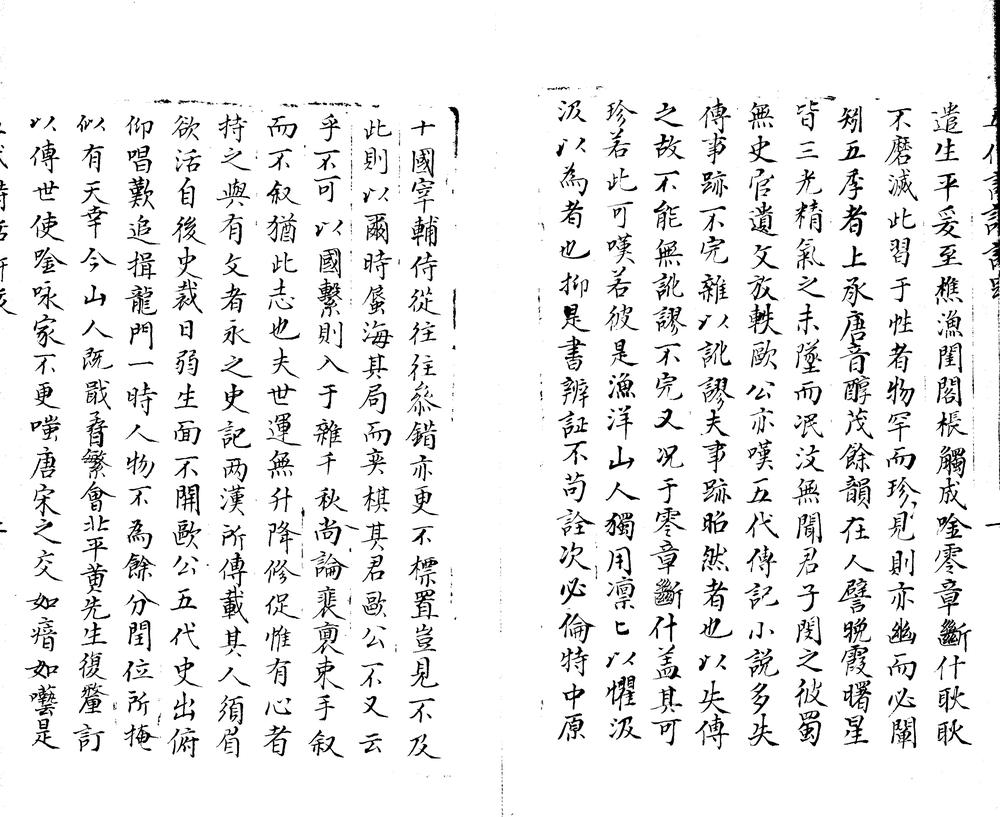 遣生平爰至樵漁閨閤棖觸成唫零章斷什耿耿
不磨滅此習于性者物罕而珍見則亦幽而必闡
矧五季者上承唐音醇茂餘韻在人譬晚霞曙星
皆三光精氣之未墜而泯沒無聞君子閔之彼蜀
無史官遺文放軼歐公亦嘆五代傳記小說多失
傳事跡不完雜以訛謬夫事跡昭然者也以失傳
之故不能無訛謬不完又况于零章斷什盖其可
珍若此可嘆若彼是漁洋山人獨用凛匕以懼汲
汲以為者也抑是書辨証不苟詮次必倫特中原
十國宰輔侍從往往叅錯亦更不標置豈見不及
此則以爾時蜃海其局而奕棋其君歐公不又云
乎不可以國繫則入于雜千秋尚論裹裏束手叙
而不叙猶此志也夫世運無升降修促惟有心者
持之與有文者永之史記两漢所傳載其人須眉
欲活自後史裁日弱生面不開歐公五代史出俯
仰唱歎追揖龍門一時人物不為餘分閏位所掩
似有天幸今山人既戩孴繁會北平黄先生復釐訂
以傳世使唫咏家不更嗤唐宋之交如瘖如囈是